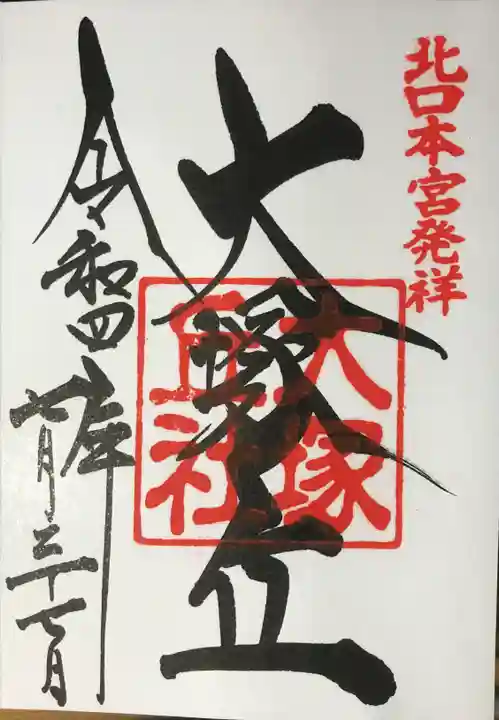 北口本宮発祥
大塚丘
大塚
丘社
令和四年
七月二十七日